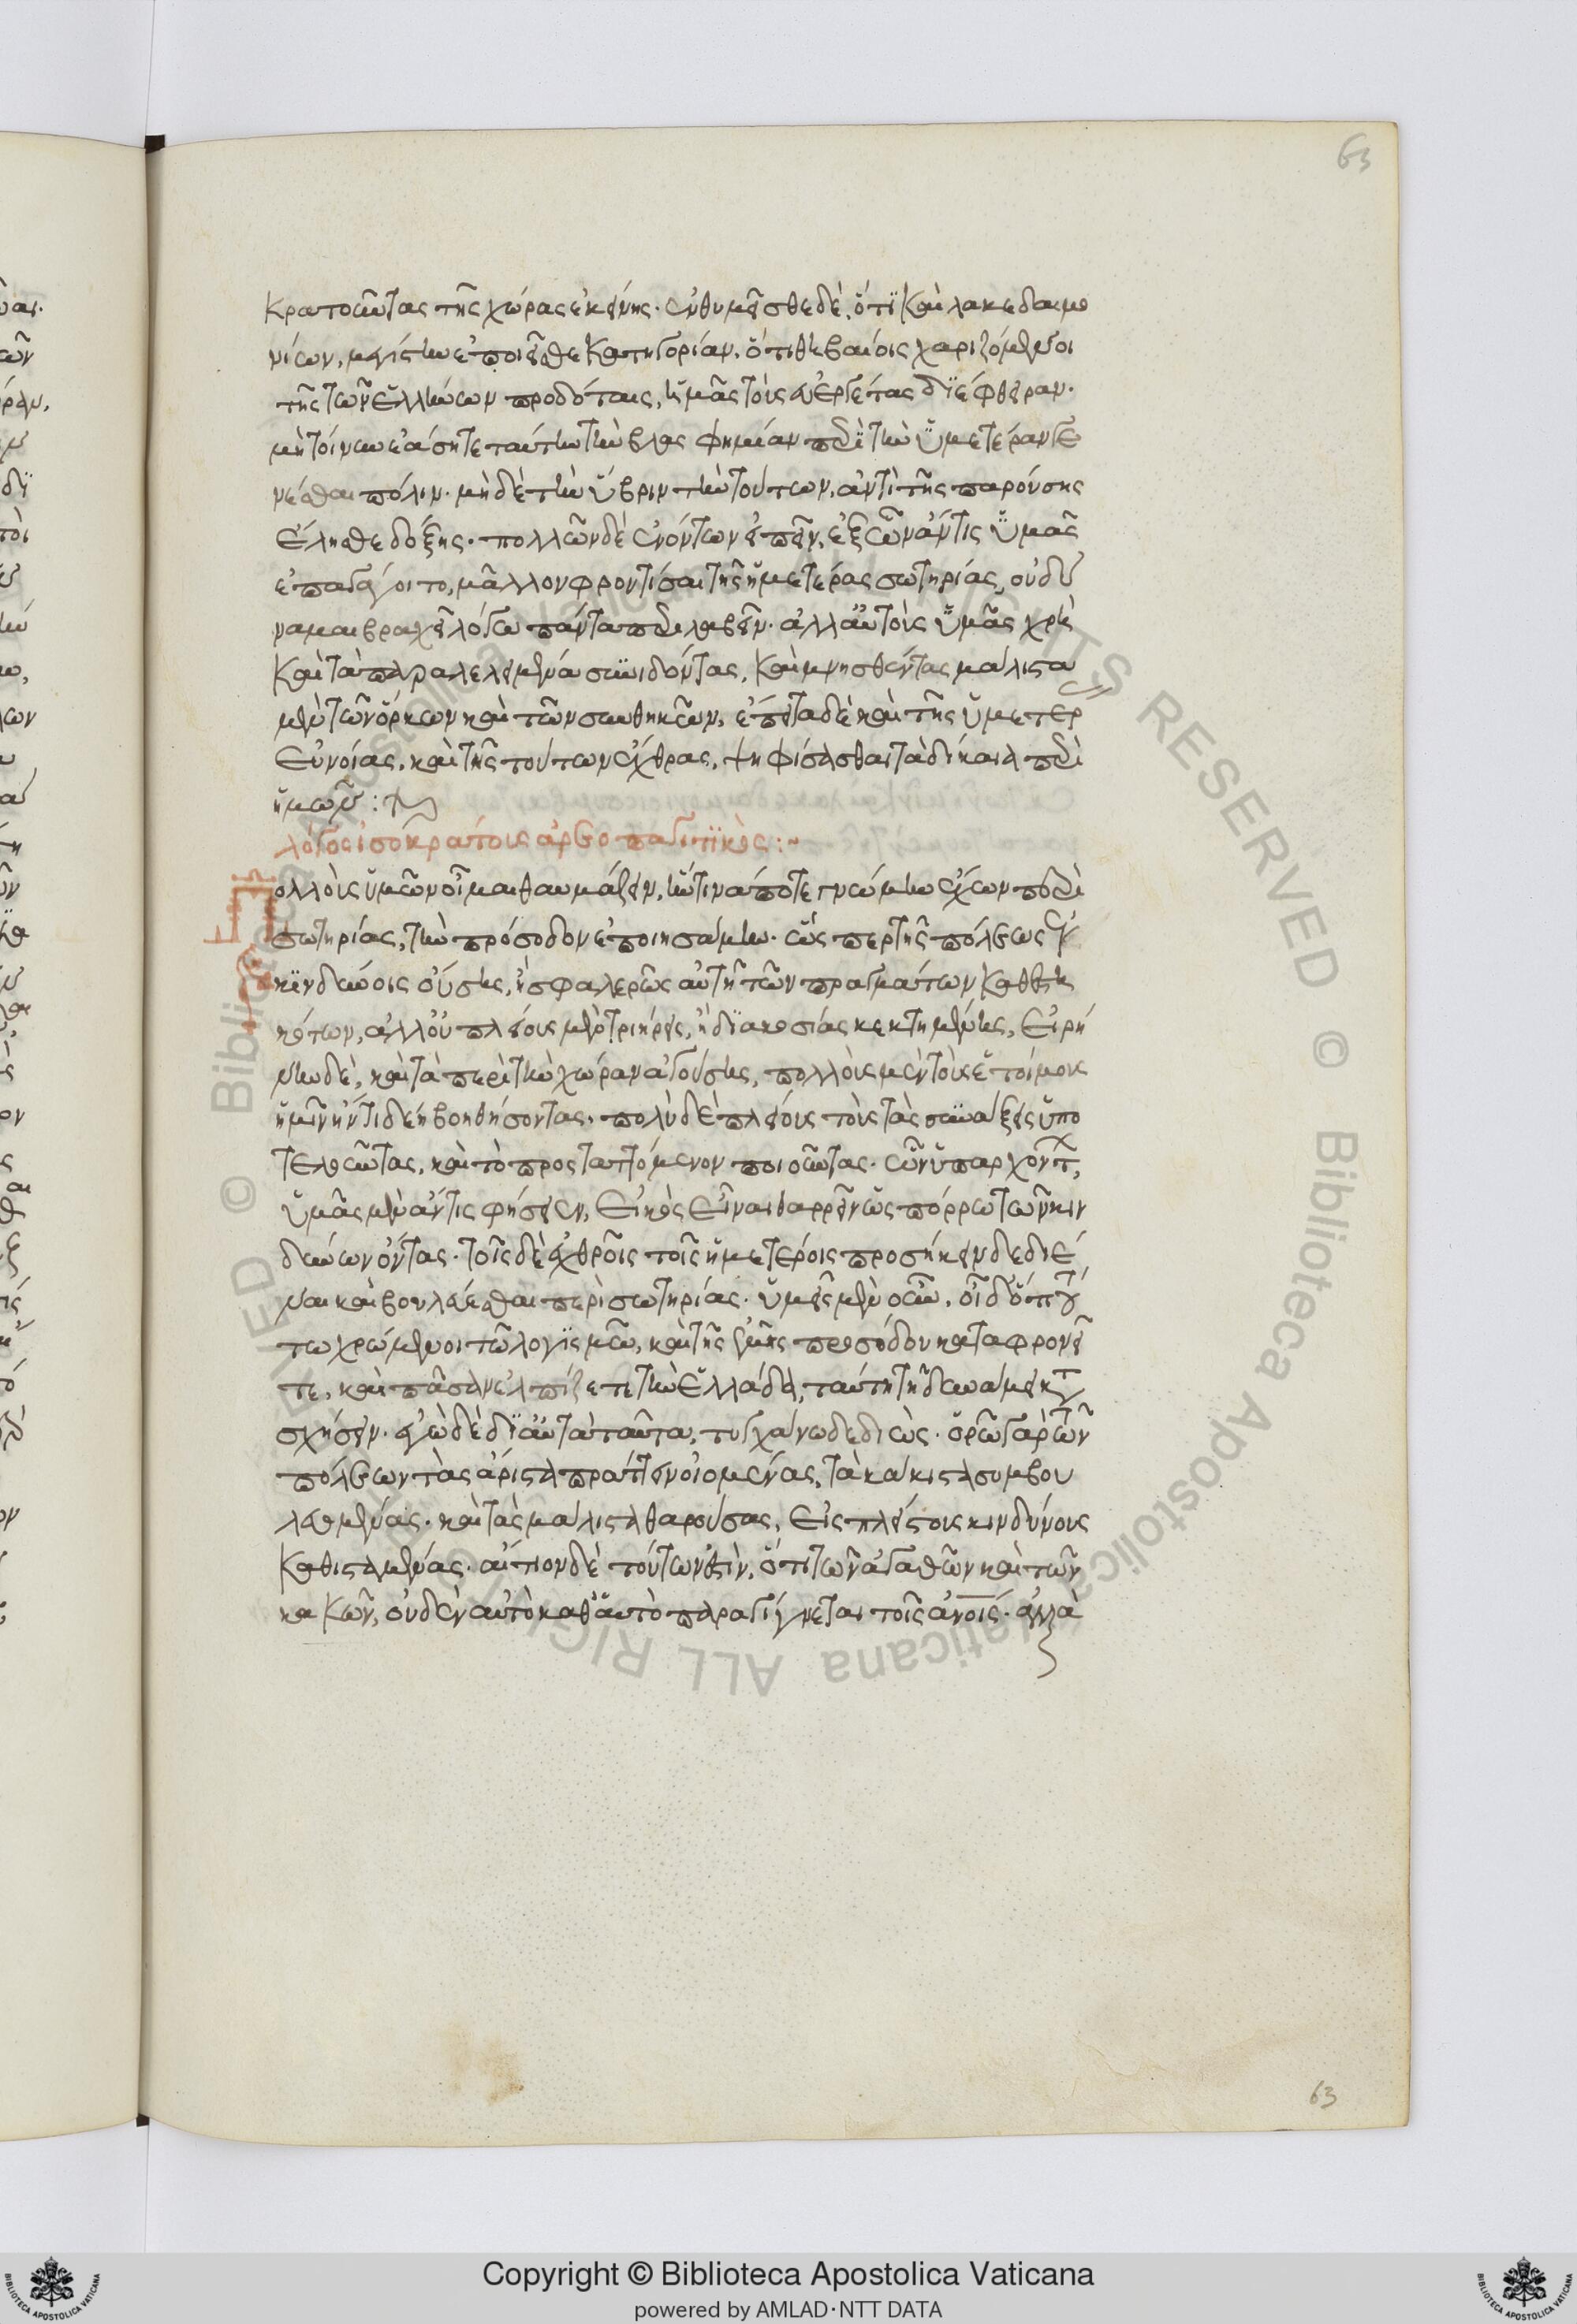 63
κρατοῦντας τῆς χώρας ἐκείνης· ἐνθυμεῖσθε δὲ, ὅτι καὶ λακεδαιμο
νίων, μεγίστην ἐποιεῖσθε κατηγορίαν, ὅτι θηβαίοις χαριζόμενοι
τῆς τῶν ἑλλήνων προδόταις, ἡμᾶς τοὺς εὐεργέτας διέφθειραν·
μὴ τοίνυν ἐάσητε ταύτην τὴν βλασφημίαν περὶ τὴν ὑμετέραν γε
νέσθαι πόλιν· μὴ δὲ τὴν ὕβριν τὴν τούτων, ἀντὶ τῆς παρούσης
ἕλησθε δόξης· πολλῶν δὲ ἐνόντων εἰπεῖν, ἐξ ὧν ἄν τις ὑμᾶς
ἐπαγάγοιτο, μᾶλλον φροντίσαι τῆς ἡμετέρας σωτηρίας, οὐ δύ
ναμαι βραχεῖ λόγω πάντα περιλαβεῖν· ἀλλ' αὐτοὺς ὑμᾶς χρὴ
καὶ τὰ παραλελειμμένα συνιδόντας, καὶ μνησθέντας μάλιστα
μὲν τῶν ὅρκων καὶ τῶν συνθηκῶν, ἔπειτα δὲ καὶ τῆς ὑμετέρ
εὐνοίας, καὶ τῆς τούτων ἔχθρας, ψηφίσασθαι τὰ δίκαια περὶ
ἡμῶν :
λόγος ἰσοκράτους ἀρεοπαγιτικὸς :~
Πολλοὺς ὑμῶν οἶμαι θαυμάζειν, ἥντινά ποτε γνώμην ἔχων περὶ
σωτηρίας, τὴν πρόσοδον ἐποιησάμην· ὥς περ τῆς πόλεως ἐν
κινδύνοις οὔσης, ἢ σφαλερῶς αὐτῆ τῶν πραγμάτων καθεστη
κότων, ἀλλ' οὐ πλείους μὲν τριήρεις, ἢ διακοσίας κεκτημένης, εἰρή
νην δὲ, καὶ τὰ περὶ τὴν χώραν ἀγούσης, πολλοὺς μὲν τοὺς ἑτοίμους
ἡμῖν ἤν τι δέη βοηθήσοντας· πολὺ δὲ πλείους τοὺς τὰς συντάξεις ὑπο
τελοῦντας, καὶ τὸ προσταττόμενον ποιοῦντας· ὧν ὑπαρχόντ,
ὑμᾶς μὲν ἄν τις φήσειεν, εἰκὸς εἶναι θαρρεῖν ὡς πόρρω τῶν κιν
δύνων ὄντας· τοῖς δὲ ἐχθροῖς τοῖς ἡμετέροις προσήκειν δεδιέ
ναι καὶ βουλεύεσθαι περὶ σωτηρίας· ὑμεῖς μὲν οὖν, οἶδ' ὅτι τού
τω χρώμενοι τῶ λογισμῶ, καὶ τῆς ἐμῆς προσόδου καταφρονεῖ
τε, καὶ πᾶσαν ἐλπίζετε τὴν ἑλλάδα, ταύτη τῆ δυνάμει κατα
σχήσειν· ἐγὼ δὲ δι' αὐτὰ ταῦτα, τυγχάνω δεδιὼς· ὁρῶ γὰρ τῶν
πόλεων τὰς ἄριστα πράττειν οἰομένας, τὰ κάκιστα συμβου
λευομένας· καὶ τὰς μάλιστα θαρούσας, εἰς πλείστους κινδύνους
καθισταμένας· αἴτιον δὲ τούτων ἐστὶν, ὅτι τῶν ἀγαθῶν καὶ τῶν
κακῶν, οὐδὲν αὐτὸ καθ' αὑτὸ παραγίγνεται τοῖς ἀνοις· ἀλλὰ
63
© Biblioteca Apostolica Vaticana ALL RIGHTS RESERVED
Copyright © Biblioteca Apostolica Vaticana
powered by AMLAD·NTT DATA